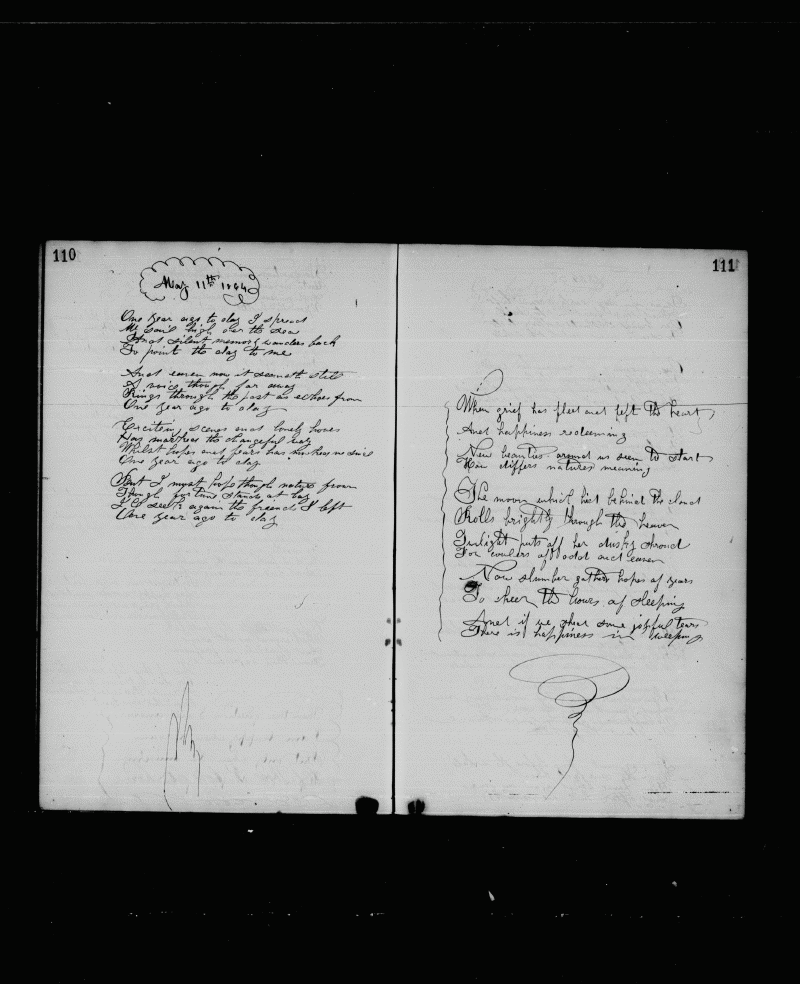 110
May 11th 1894
One year ago to day I spread
My sail high oer the sea
And silent memory wanders back
To point the day to me
And even now it seemeth still
A voice though far away
Rings through the past as echoes from
One year ago to day
Exciteing scenes and lonely hours
Has marked the changeful way
Whilst hopes and fears has
One year ago to day
But I must hope though nature frown
Though fortune stands at bay
I'll seek again the friends I left
One year ago to day
111
When grief has fled and left the heart
And happiness redeeming
New beauties around us seem to start
How differs natures meaning
The moon which hid behind the cloud
Rolls brightly through the heaven
Twilight puts off her dusky shroud
For coulers of odd and even
Now slumber gathers hopes of years
To cheer the hours of sleeping
And if we shed some joyful tears
There is happiness in weeping